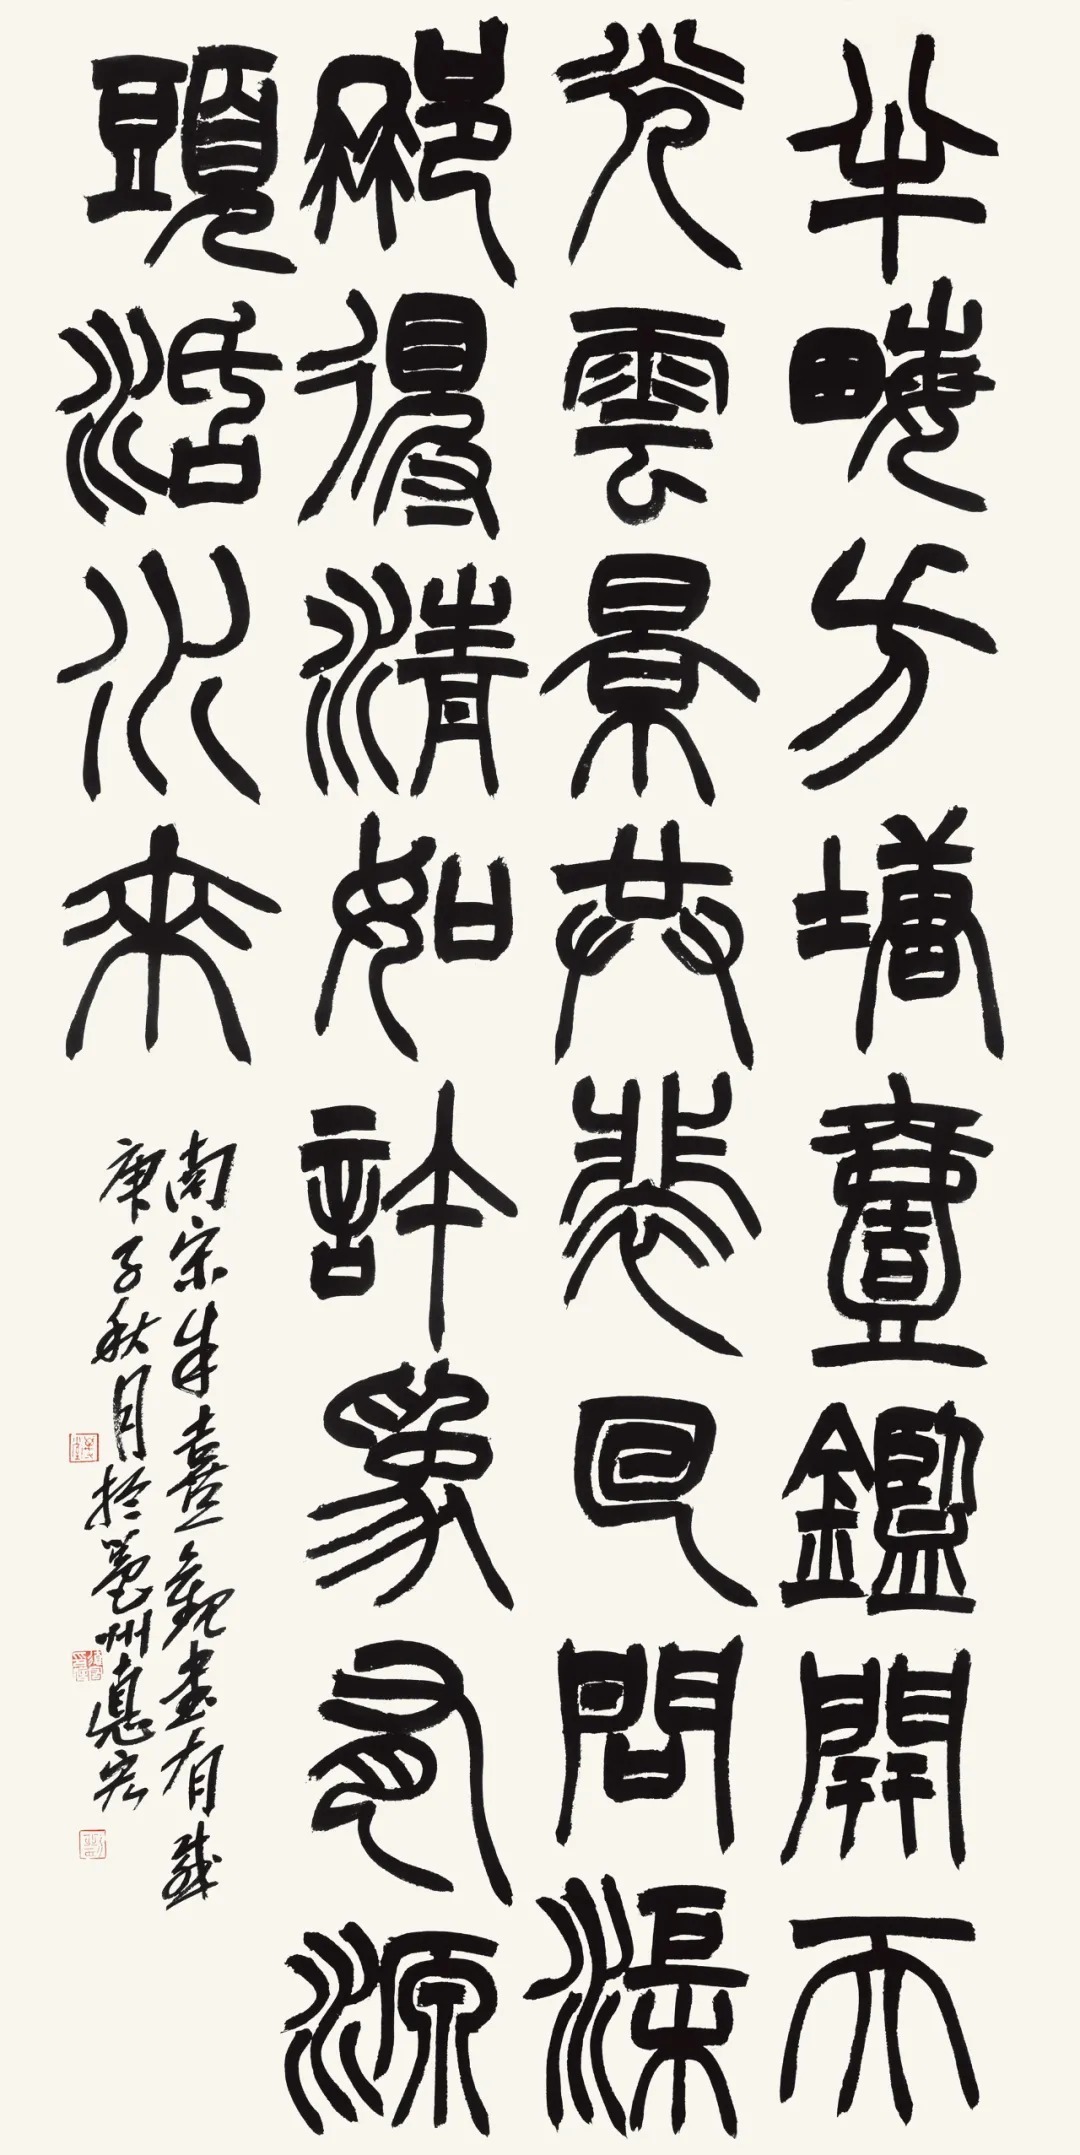 半畮方塘壹鑑開天
光雲景共裴回問渠
那得清如許爲有源
頭活水來
南宋朱熹觀書有感
庚子秋月於亳州